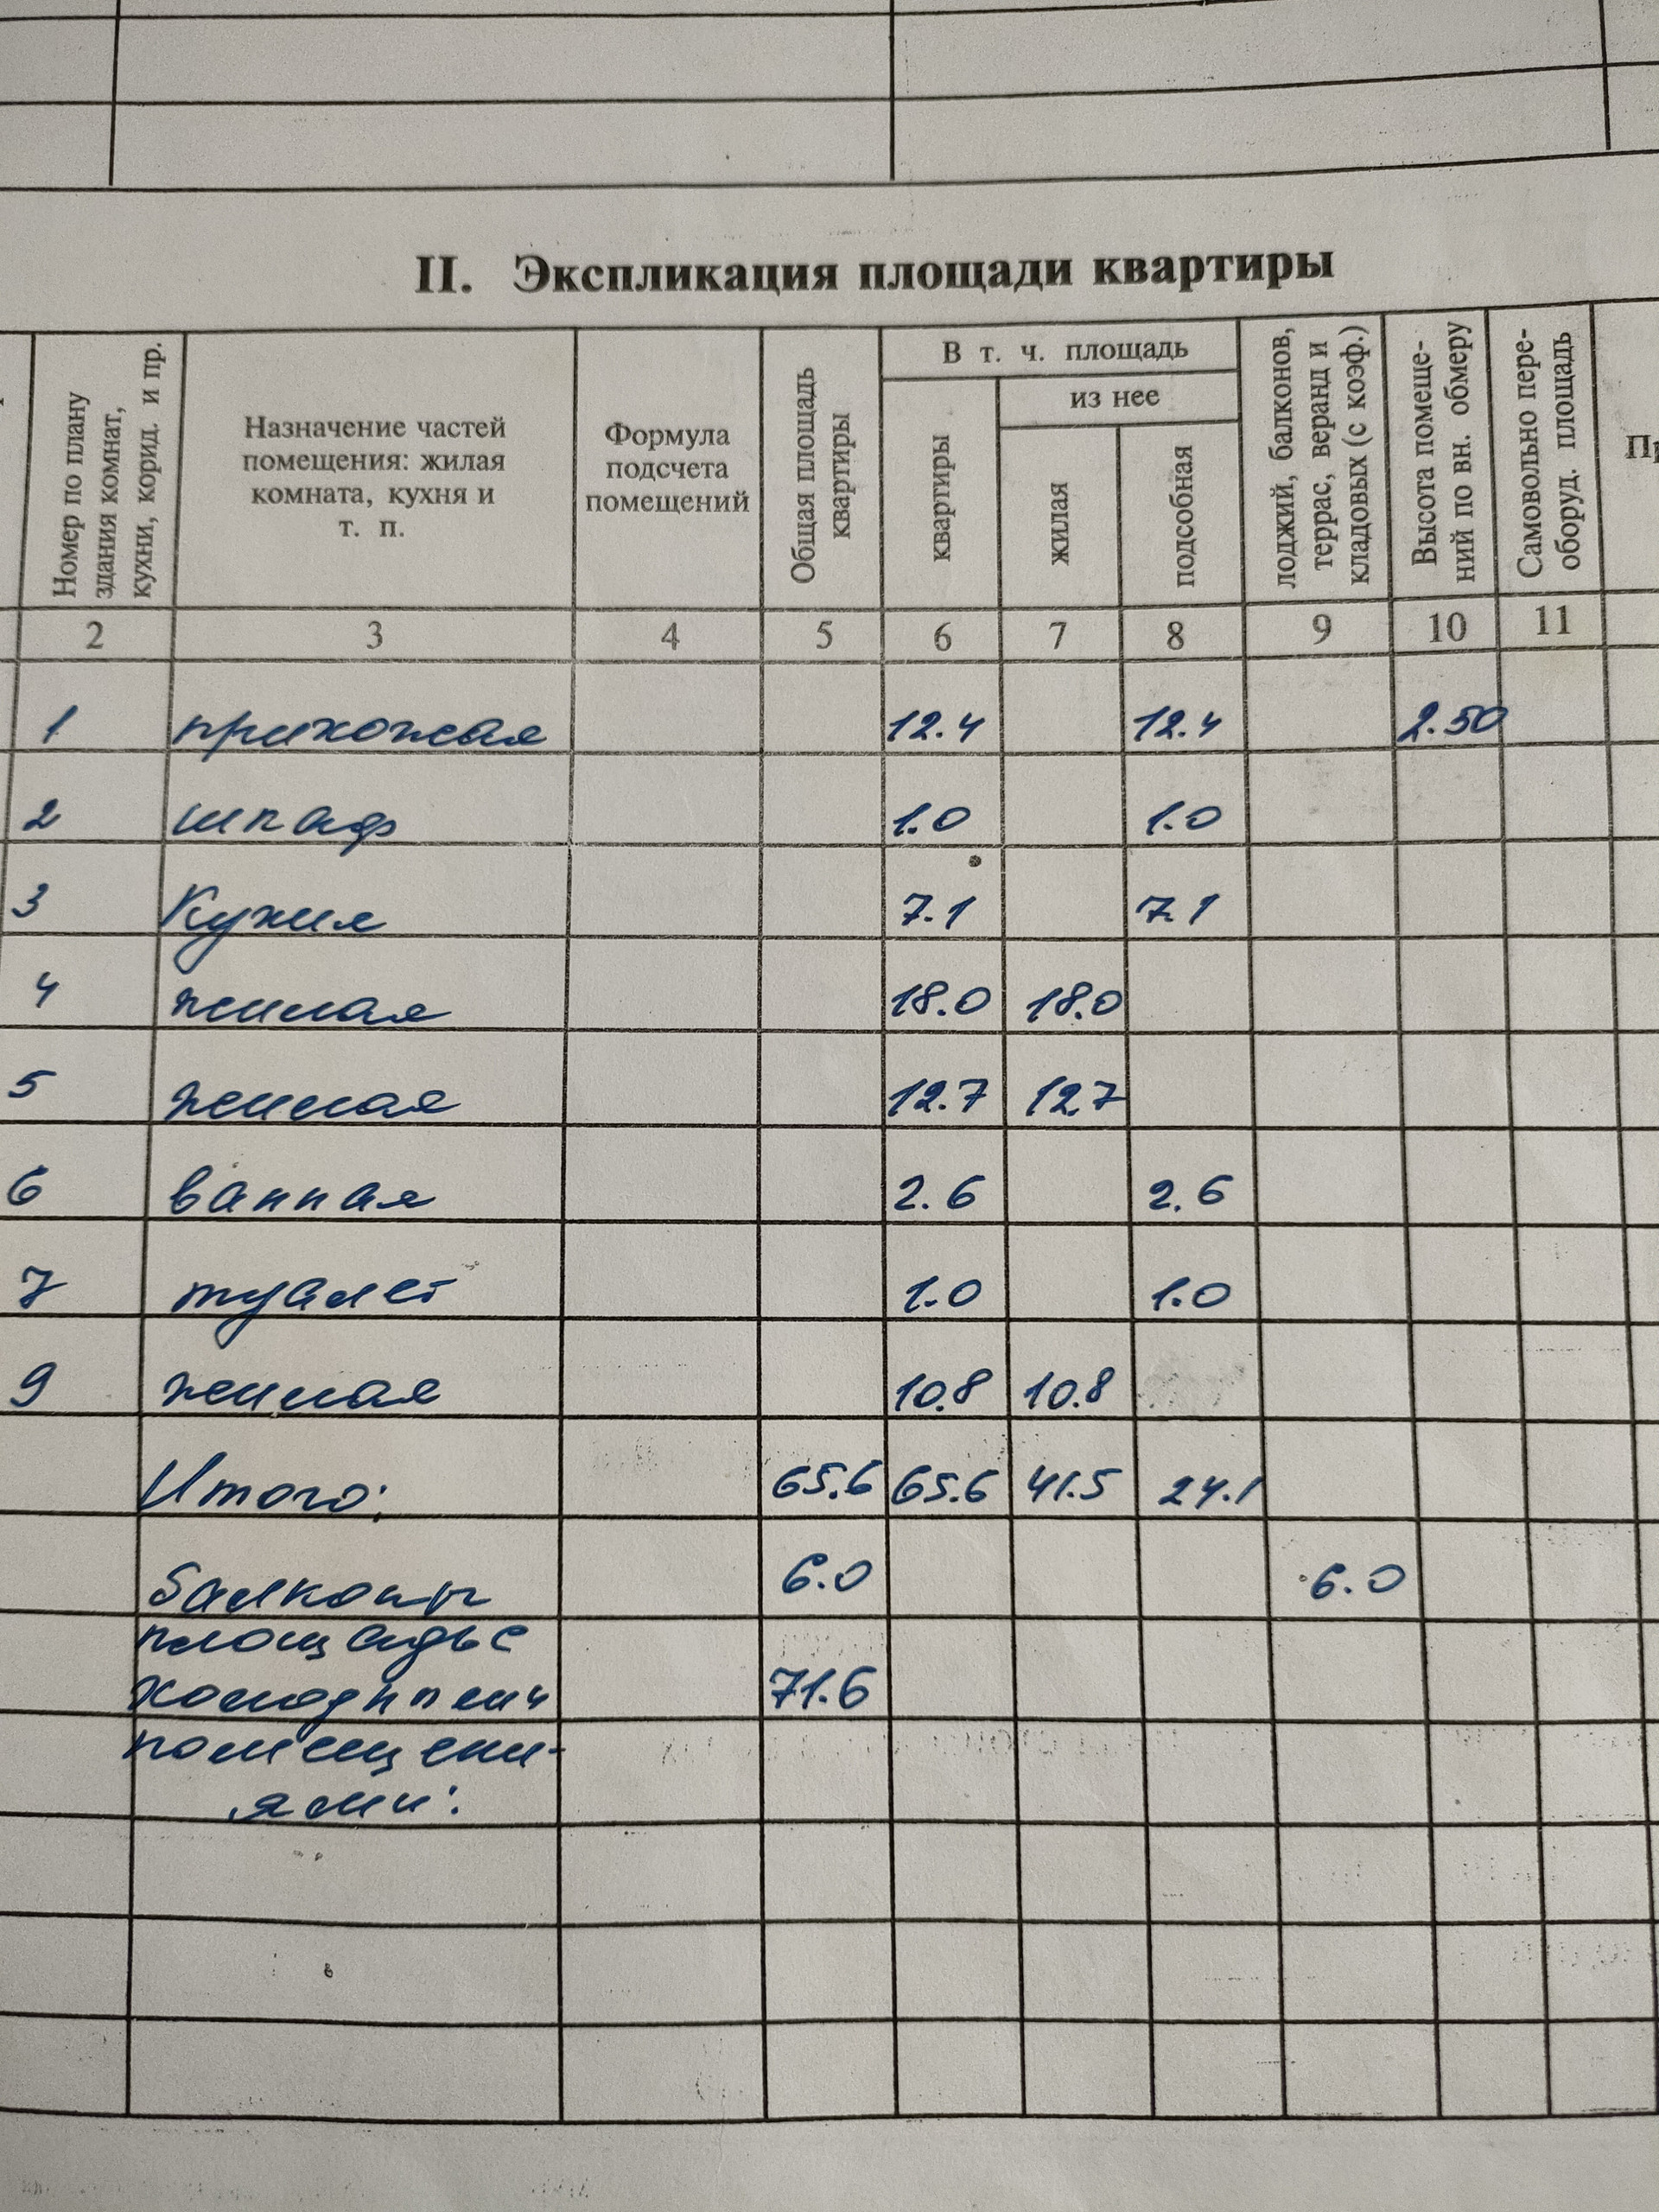 II. Экспликация площади квартиры
Номер по плану
здания комнат,
кухни, корид. и пр.
Назначение частей
помещения: жилая
комната, кухня и
т. п.
Формула
подсчета
помещений
Общая площадь
квартиры
В т. ч. площадь
из нее
квартиры
жилая
подсобная
лоджий, балконов,
террас, веранд и
кладовых (с коэф.)
Высота помеще-
ний по вн. обмеру
Самовольно пере-
оборуд. площадь
2 3 4 5 6 7 8 9 10 11
1 прихожая 12.4 12.4 2.50
2 шкаф 1.0 1.0
3 Кухня 7.1 7.1
4 жилая 18.0 18.0
5 жилая 12.7 12.7
6 ванная 2.6 2.6
7 туалет 1.0 1.0
9 жилая 10.8 10.8
Итого: 65.6 65.6 41.5 24.1
балконы 6.0 6.0
площадь с
холодными 71.6
помещени-
ями: